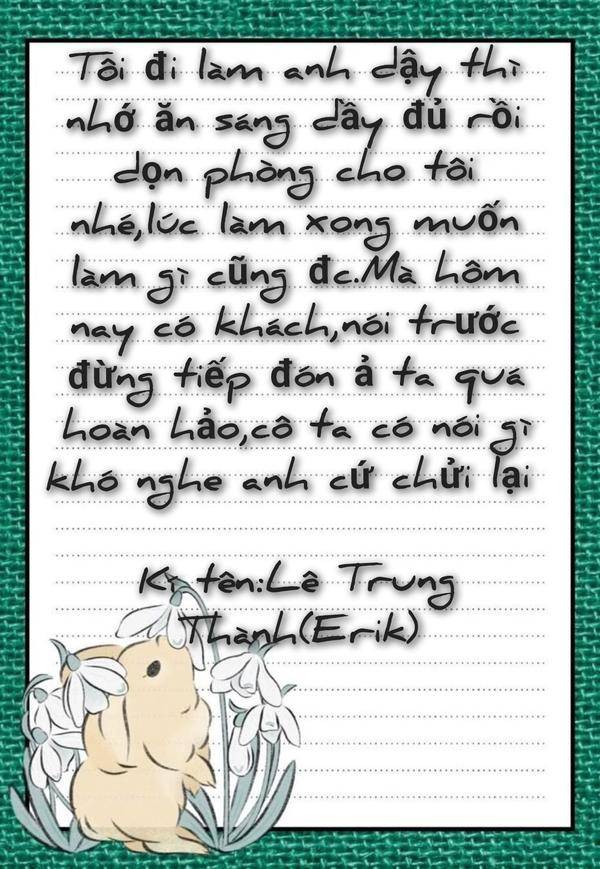 Tôi đi làm anh dậy thì
nhớ ăn sáng dầy đủ rồi
dọn phòng cho tôi
nhé,lúc làm xong muốn
làm gì cũng đc.Mà hôm
nay có khách,nói trước
đừng tiếp đón ả ta quá
hoàn hảo,cô ta có nói gì
khó nghe anh cứ chửi lại
Ký tên:Lê Trung
Thành(Erik)